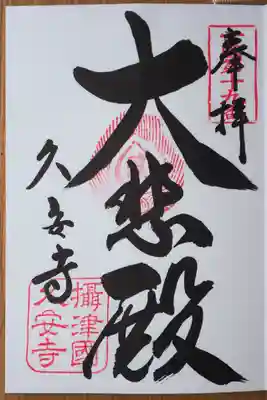 奉拝
大悲殿
久安寺
攝津國
久安寺